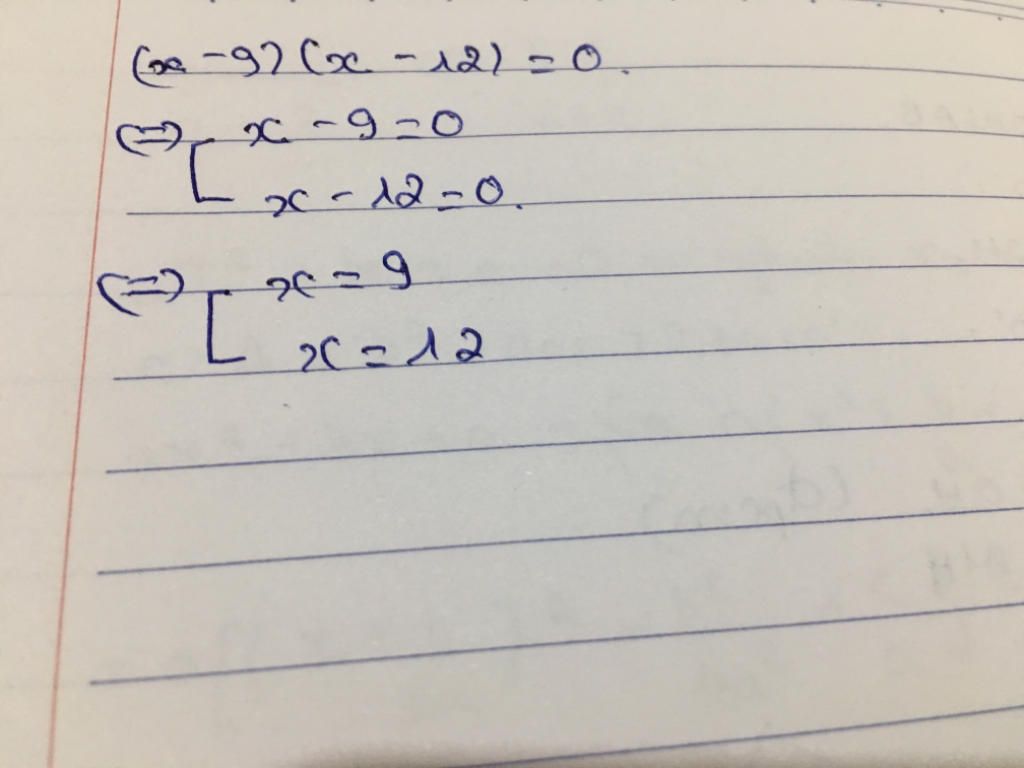 (x - 9) (x - 12) = 0.
(=) [ x - 9 = 0
x - 12 = 0.
(=) [ x = 9
x = 12